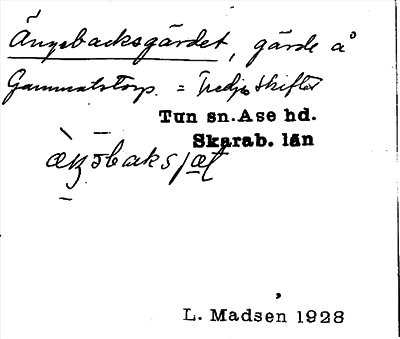 Ängsbacksgärdet, gärde å
Gammalstorp. = Tredje skiftet
Tun sn. Åse hd.
Skarab. län
L. Madsen 1928